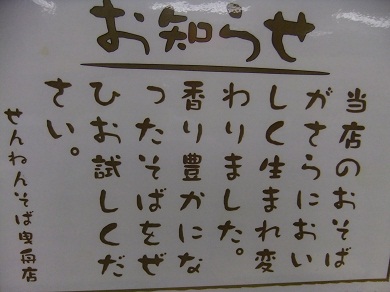 お知らせ
当店のおそば
がさらにおい
しく生まれ変
わりました。
香り豊かにな
ったそばをぜ
ひお試しくだ
さい。
せんねんそば曳舟店